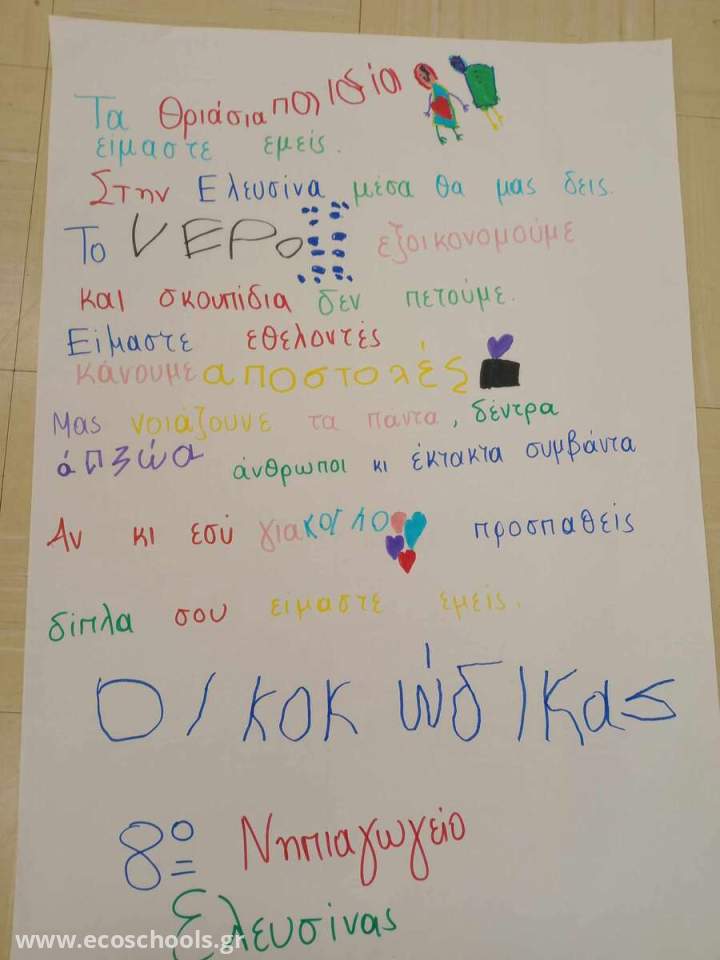 Τα Θριάσια παιδιά
είμαστε εμείς.
Στην Ελευσίνα μέσα θα μας δεις.
Το ΝΕΡο εξοικονομούμε
και σκουπίδια δεν πετούμε.
Είμαστε εθελοντές
κάνουμε αποστολές
Μας νοιάζουνε τα παντα, δέντρα
άπζώα άνθρωποι κι έκτακτα συμβάντα
Αν κι εσύ για προσπαθείς
δίπλα σου ειμαστε εμείς.
ΟΙΚΟΚώδΙΚας
8º Νηπιαγωγείο
Ελευσίνας
www.ecoschools.gr